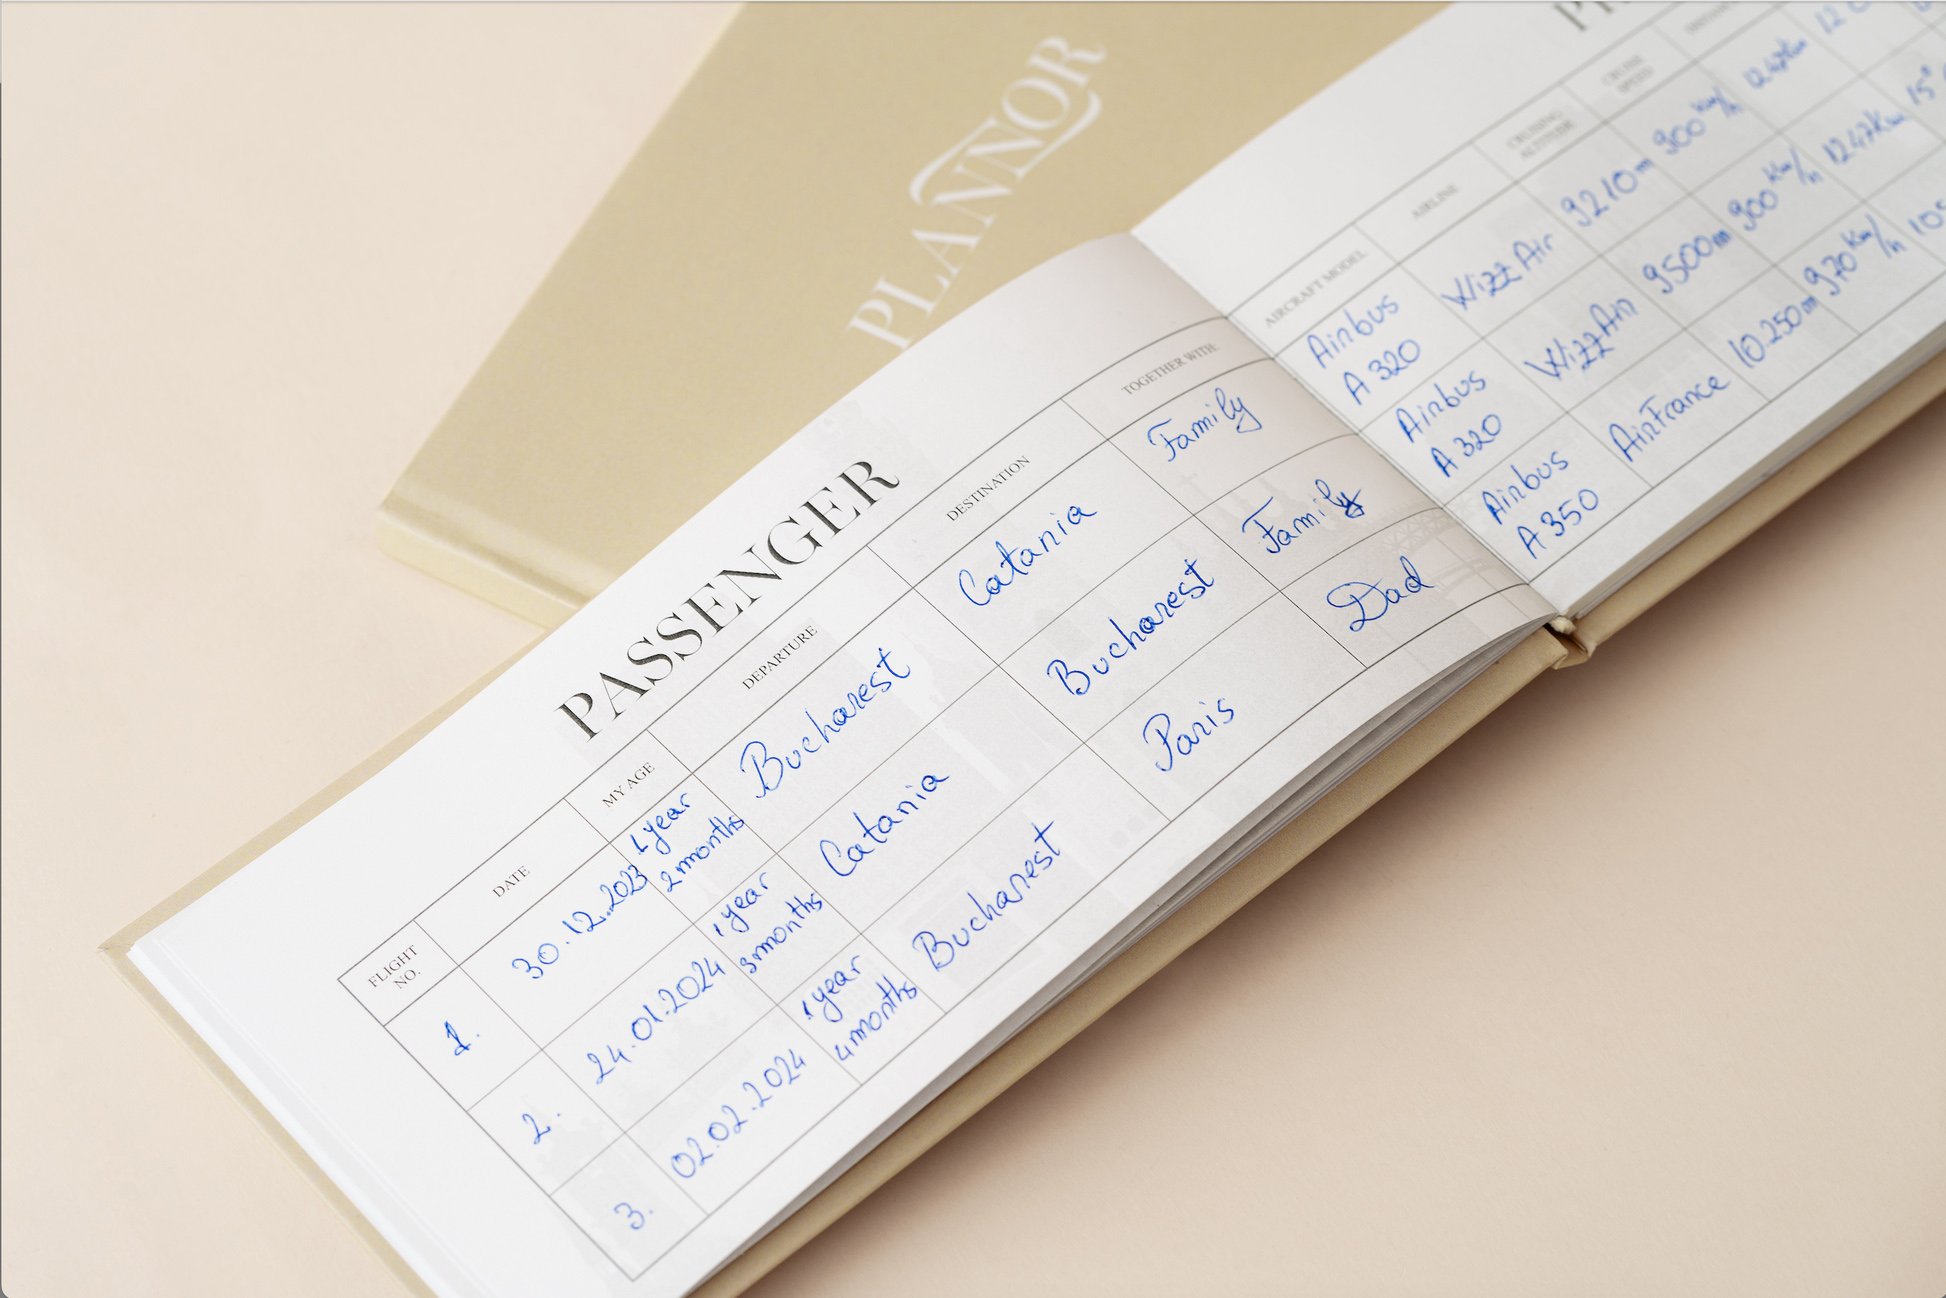 PLANNOR
PASSENGER
FLIGHT NO. DATE MY AGE DEPARTURE DESTINATION TOGETHER WITH:
1. 30.12.2023 1 year 2 months Bucharest Catania Family
2. 24.01.2024 1 year 3 months Catania Bucharest Family
3. 02.02.2024 1 year 4 months Bucharest Paris Dad
AIRCRAFT MODEL AIRLINE CRUISING ALTITUDE CRUISE SPEED
Airbus A 320 Wizz Air 9210 m 900 km/h 1247 km
Airbus A 320 Wizz Air 9500 m 900 km/h 1247 km
Airbus A 350 AirFrance 10.250 m 970 km/h